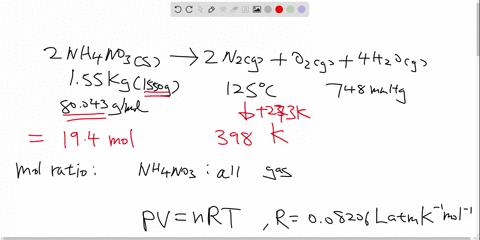 2NH4NO3(s) → 2N2(g) + O2(g) + 4H2O(g)
1.55Kg(1550g) 125°C 748mmHg
80.043g/mol ↓+273K
= 19.4 mol 398 K
mol ratio: NH4NO3 : all gas
PV=nRT , R=0.08206 L atm K⁻¹ mol⁻¹